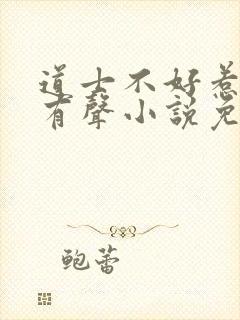 道士不好惹
有聲小說免
鲍蕾